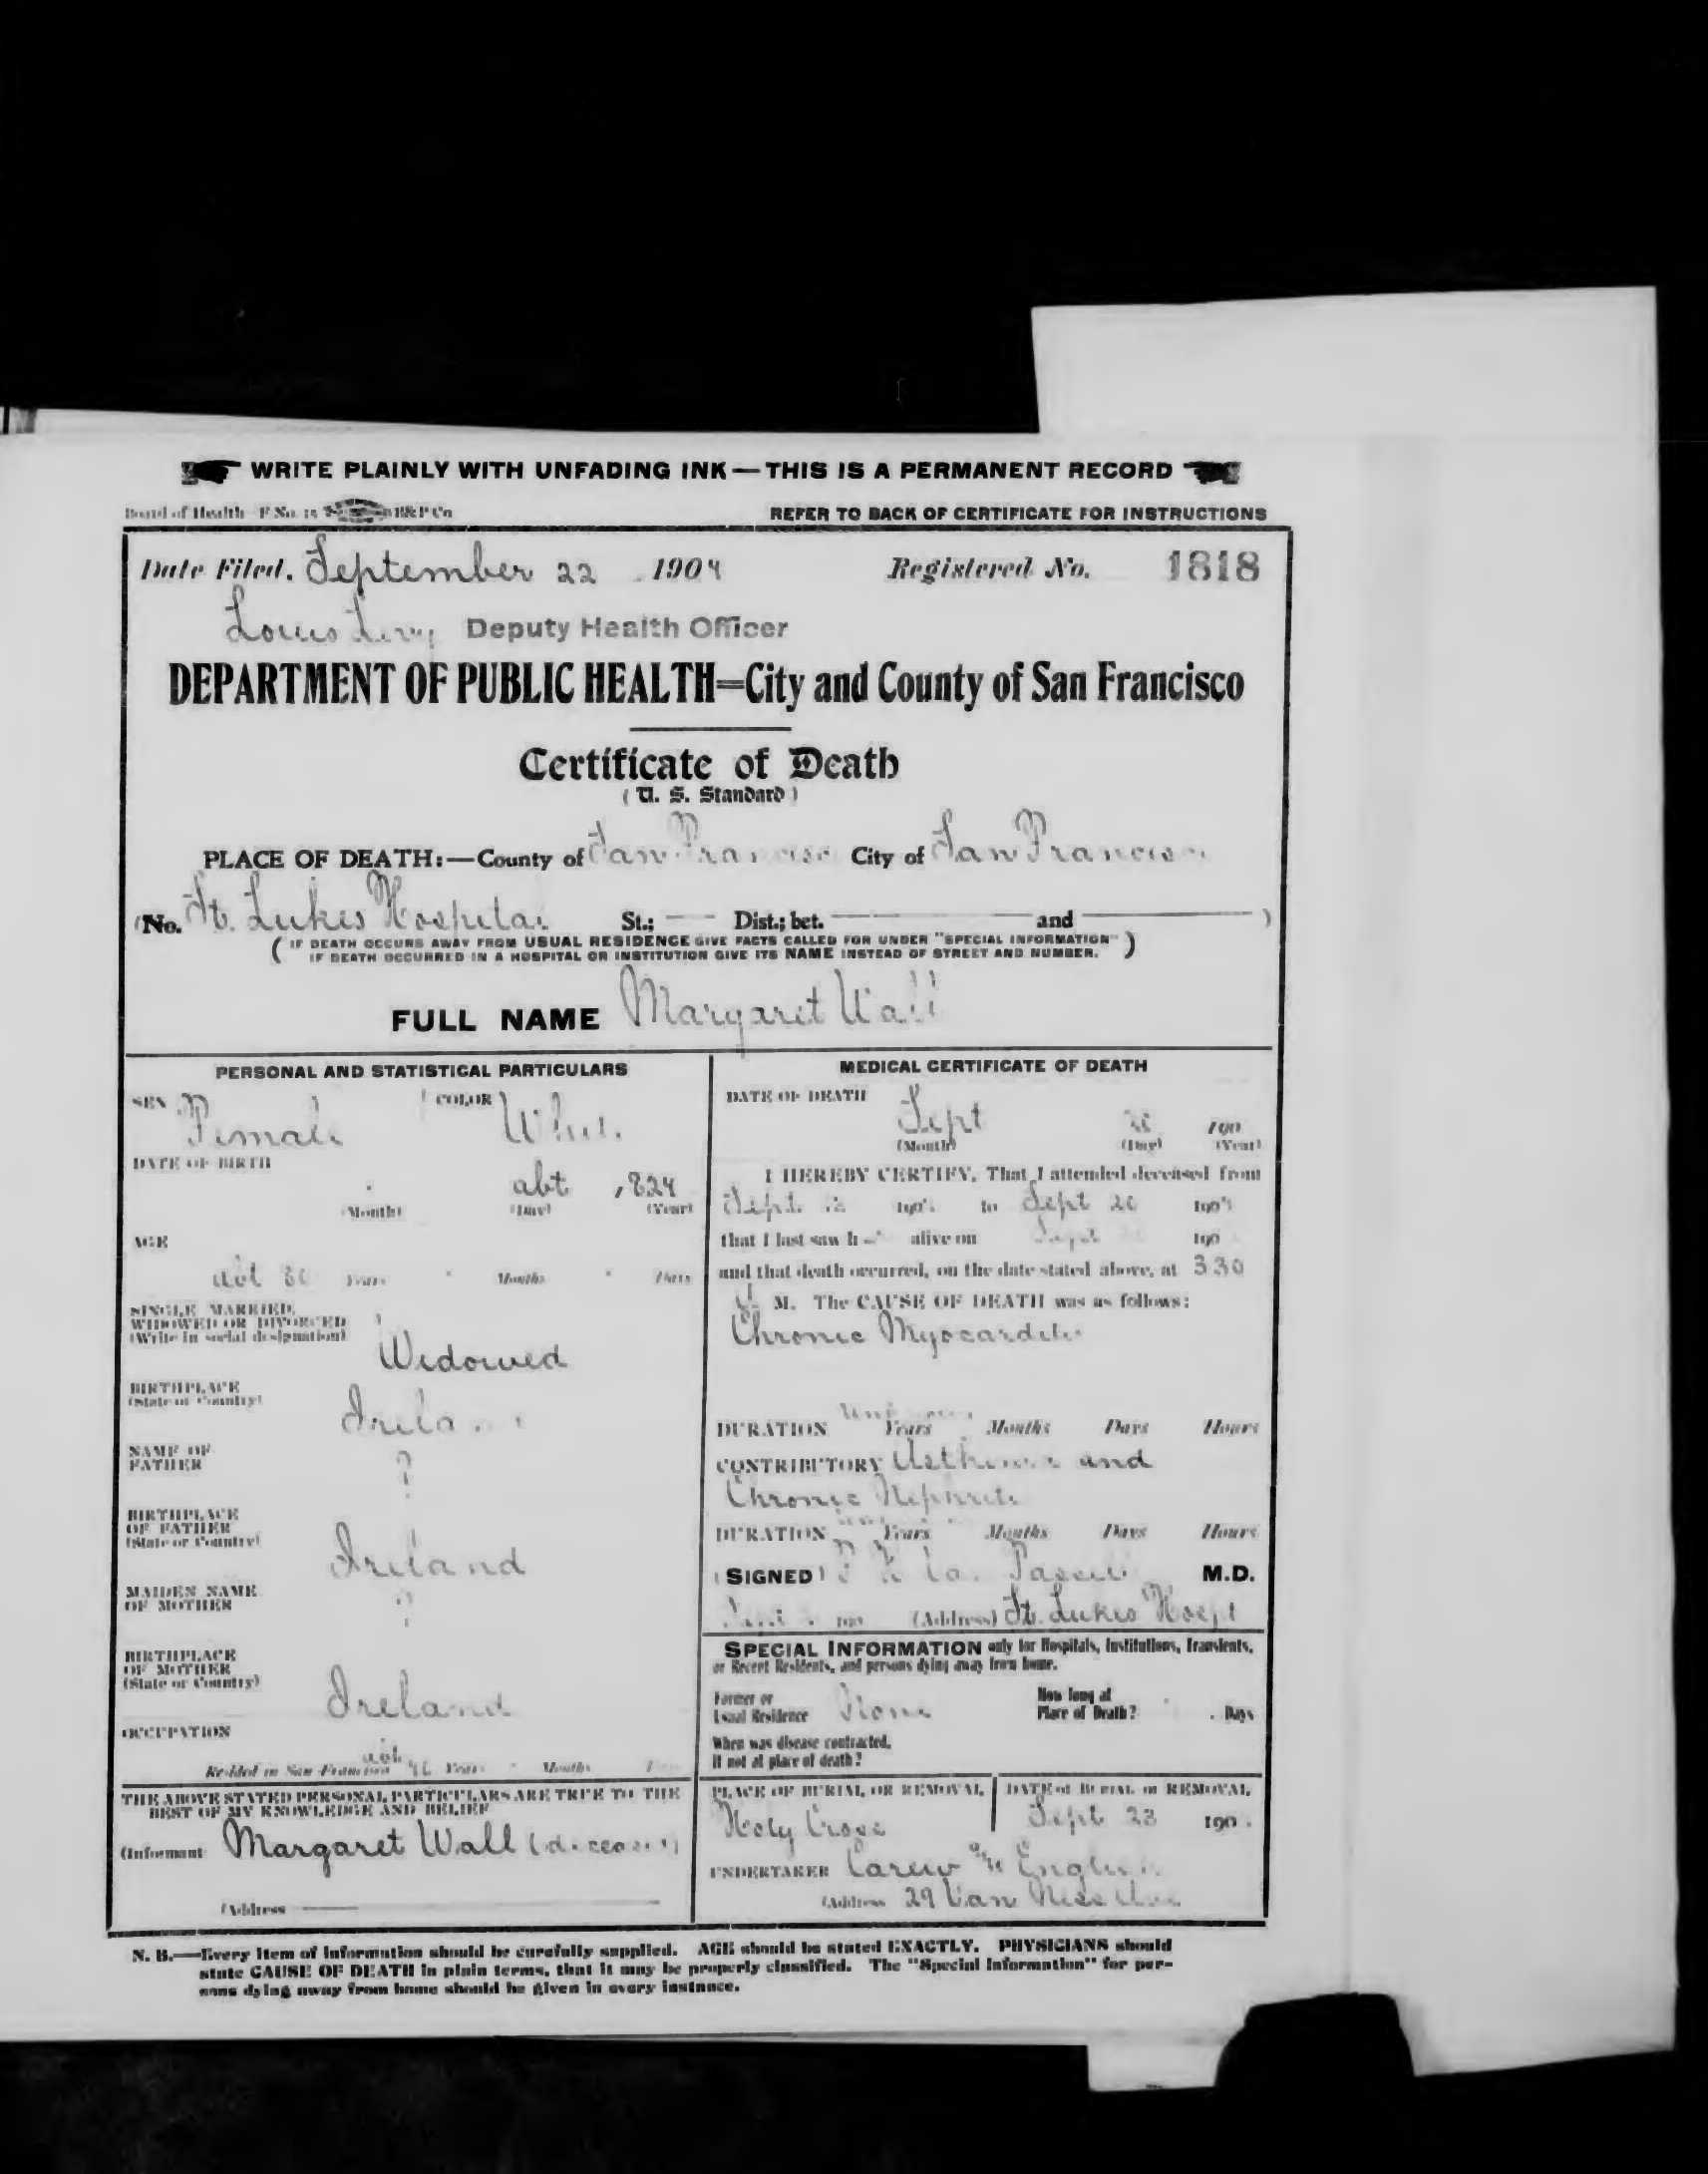 WRITE PLAINLY WITH UNFADING INK — THIS IS A PERMANENT RECORD
Board of Health F No. 15 H&P Co
REFER TO BACK OF CERTIFICATE FOR INSTRUCTIONS
Date Filed, September 22 1904 Registered No. 1818
Louis Levy Deputy Health Officer
DEPARTMENT OF PUBLIC HEALTH=City and County of San Francisco
Certificate of Death
( U. S. Standard )
PLACE OF DEATH:—County of San Francisco City of San Francisco
(No. St. Lukes Hospital St.; — Dist.; bet. — and — )
( IF DEATH OCCURS AWAY FROM USUAL RESIDENCE GIVE FACTS CALLED FOR UNDER "SPECIAL INFORMATION"
IF DEATH OCCURRED IN A HOSPITAL OR INSTITUTION GIVE ITS NAME INSTEAD OF STREET AND NUMBER. )
FULL NAME Margaret Wall
PERSONAL AND STATISTICAL PARTICULARS
SEX Female COLOR White
DATE OF BIRTH
abt 1824
(Month) (Day) (Year)
AGE
abt 80 Years Months Days
SINGLE, MARRIED,
WIDOWED OR DIVORCED
(Write in social designation)
Widowed
BIRTHPLACE
(State or Country)
Ireland
NAME OF
FATHER
?
BIRTHPLACE
OF FATHER
(State or Country)
Ireland
MAIDEN NAME
OF MOTHER
?
BIRTHPLACE
OF MOTHER
(State or Country)
Ireland
OCCUPATION
Resided in San Francisco abt Years Months Days
THE ABOVE STATED PERSONAL PARTICULARS ARE TRUE TO THE
BEST OF MY KNOWLEDGE AND BELIEF
(Informant Margaret Wall (deceased)
(Address —
MEDICAL CERTIFICATE OF DEATH
DATE OF DEATH
Sept 20 190
(Month) (Day) (Year)
I HEREBY CERTIFY, That I attended deceased from
Sept 190 to Sept 20 1904
that I last saw h alive on Sept 190
and that death occurred, on the date stated above, at 3 30
M. The CAUSE OF DEATH was as follows:
Chronic Myocarditis
DURATION Unknown Years Months Days Hours
CONTRIBUTORY Asthma and
Chronic Nephritis
DURATION Years Months Days Hours
(SIGNED) M.D.
190 (Address) St. Lukes Hospt
SPECIAL INFORMATION only for Hospitals, Institutions, Transients,
or Recent Residents, and persons dying away from home.
Former or
Usual Residence None
How long at
Place of Death? Days
When was disease contracted,
If not at place of death?
PLACE OF BURIAL OR REMOVAL
Holy Cross
DATE of BURIAL or REMOVAL
Sept 23 190
UNDERTAKER Carew & English
(Address 29 Van Ness Ave
N. B.—Every item of information should be carefully supplied. AGE should be stated EXACTLY. PHYSICIANS should
state CAUSE OF DEATH in plain terms, that it may be properly classified. The "Special Information" for per-
sons dying away from home should be given in every instance.